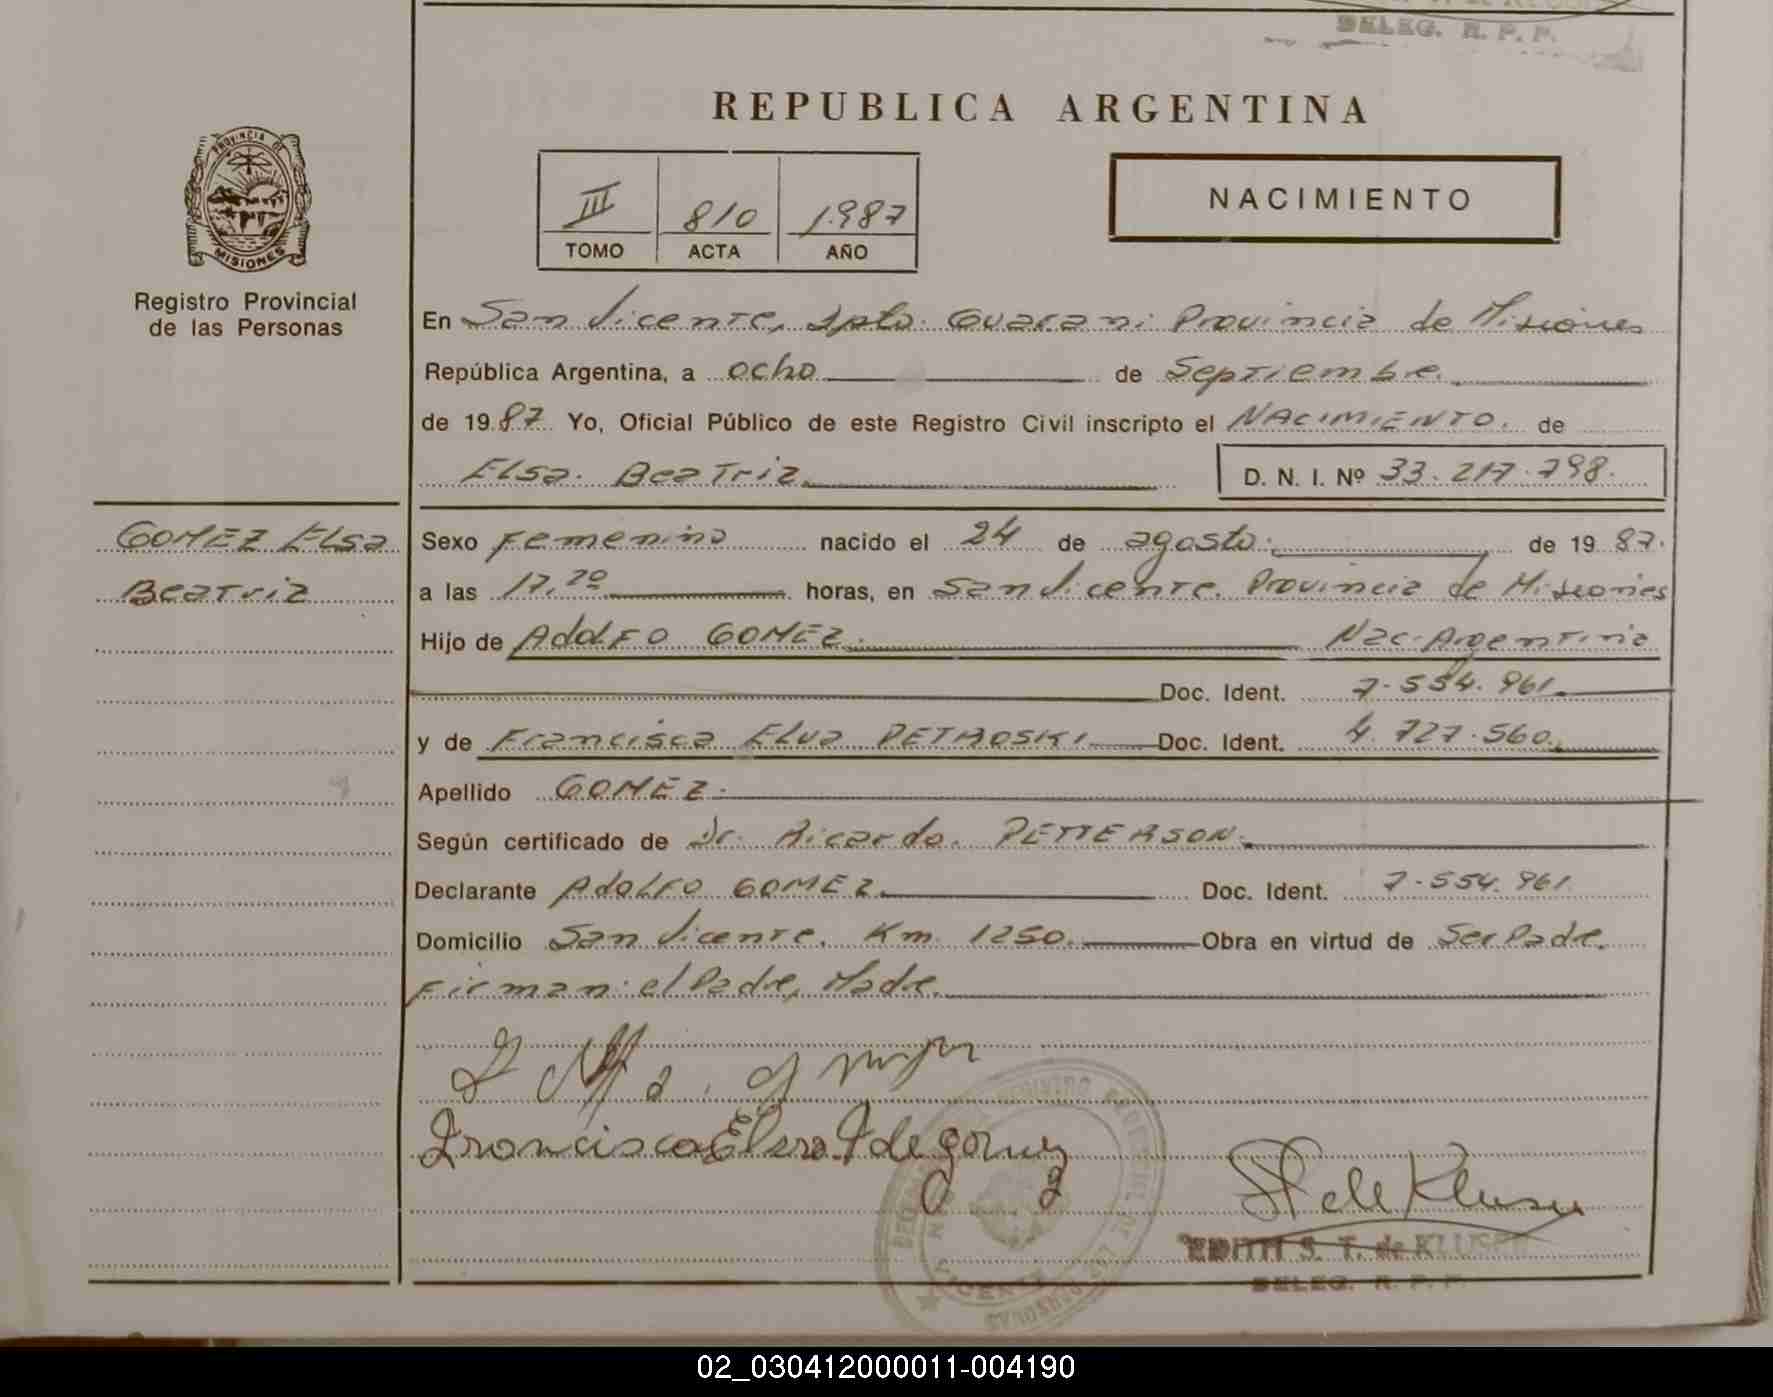 DELEG. R. P. P.
REPUBLICA ARGENTINA
PROVINCIA DE
MISIONES
Registro Provincial
de las Personas
III 810 1.987
TOMO ACTA AÑO
NACIMIENTO
En San Vicente, Dpto. Guarani Provincia de Misiones
República Argentina, a ocho de Septiembre.
de 1987 Yo, Oficial Público de este Registro Civil inscripto el NACIMIENTO. de
Elsa. Beatriz D. N. I. Nº 33.217.798.
GOMEZ Elsa
Beatriz
Sexo Femenino nacido el 24 de agosto. de 1987.
a las 17,20 horas, en San Vicente. Provincia de Misiones
Hijo de Adolfo GOMEZ. Nac. Argentina
Doc. Ident. 7.554.961.
y de Francisca Elva PETROSKI Doc. Ident. 4.727.560.
Apellido GOMEZ.
Según certificado de Dr. Ricardo. PETTERSON.
Declarante Adolfo GOMEZ. Doc. Ident. 7.554.961.
Domicilio San Vicente. Km 1250. Obra en virtud de Ser Padre.
Firman: el Padre, Madre.
Francisca Elva P de gomez
S T de Klusen
EDITH S. T. de KLUSEN
DELEG. R. P. P.
02_030412000011-004190